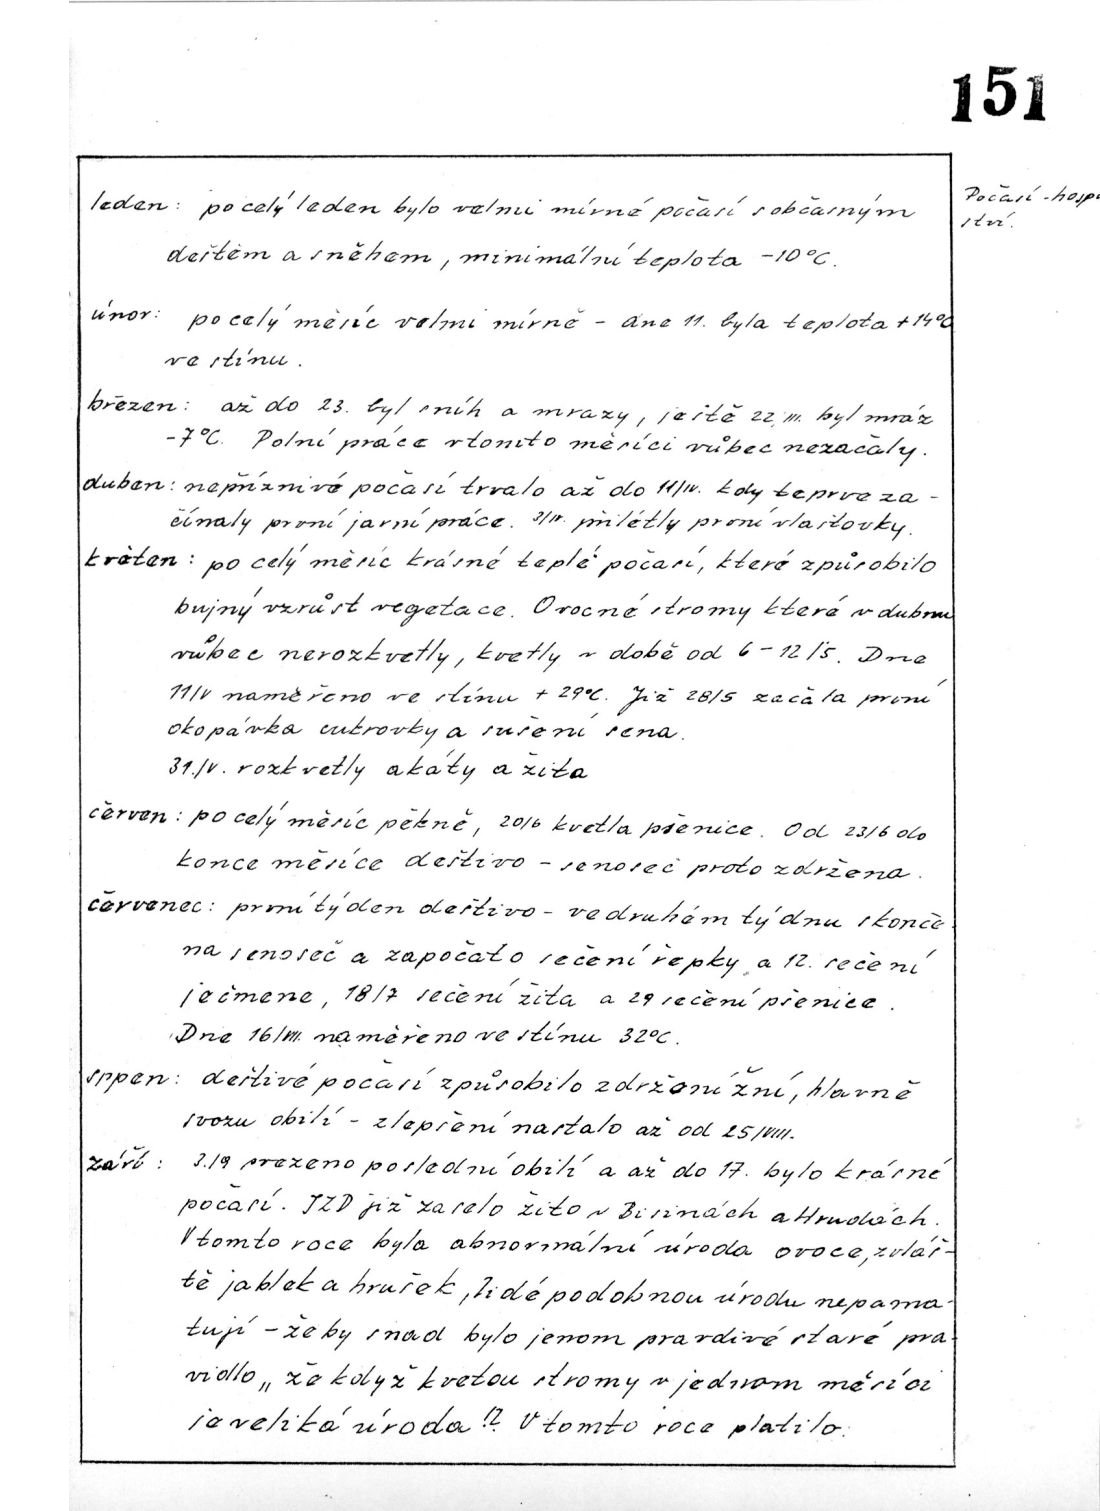 151
Počasí - hosp
ství.
leden: po celý leden bylo velmi mírné počasí s občasným
deštěm a sněhem, minimální teplota -10°C.
únor: po celý měsíc velmi mírně - dne 11. byla teplota +14°C
ve stínu.
březen: až do 23. byl sníh a mrazy, ještě 22/III. byl mráz
-7°C. Polní práce v tomto měsíci vůbec nezačaly.
duben: nepříznivé počasí trvalo až do 11/IV. kdy teprve za-
čínaly první jarní práce. 3/IV. přilétly první vlaštovky.
květen: po celý měsíc krásné teplé počasí, které způsobilo
bujný vzrůst vegetace. Ovocné stromy které v dubnu
vůbec nerozkvetly, kvetly v době od 6 - 12/5. Dne
11/V naměřeno ve stínu + 29°C. Již 28/5 začala první
okopávka cukrovky a sušení sena.
31./V. rozkvetly akáty a žita
červen: po celý měsíc pěkně, 20/6 kvetla pšenice. Od 23/6 do
konce měsíce deštivo - senoseč proto zdržena.
červenec: první týden deštivo - ve druhém týdnu skonče-
na senoseč a započato sečení řepky a 12. sečení
ječmene, 18/7 sečení žita a 29 sečení pšenice.
Dne 16/VII. naměřeno ve stínu 32°C.
srpen: deštivé počasí způsobilo zdržení žní, hlavně
svozu obilí - zlepšení nastalo až od 25/VIII.
září: 3./9 svezeno poslední obilí a až do 17. bylo krásné
počasí. JZD již zaselo žito v Bisinách a Hrudách.
V tomto roce byla abnormální úroda ovoce, zvláš-
tě jablek a hrušek, lidé podobnou úrodu nepama-
tují - že by snad bylo jenom pravdivé staré pra-
vidlo „ že když kvetou stromy v jednom měsíci
je veliká úroda!? V tomto roce platilo.